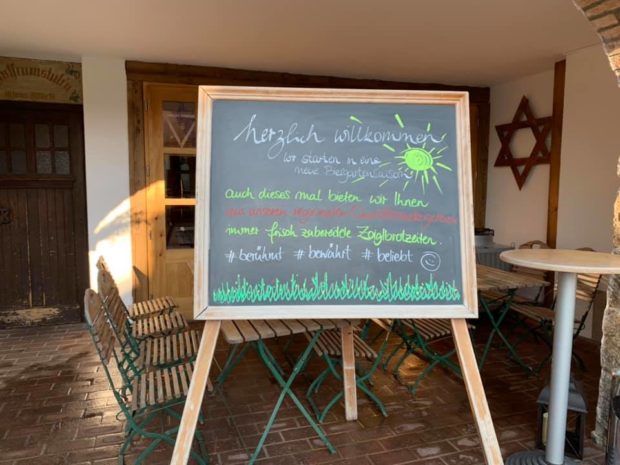 herzlich willkommen
wir starten in eine
neue Biergartensaison
auch dieses mal bieten wir Ihnen
aus unseren regionalen
immer frisch zubereitete Zoiglbrotzeiten.
#berühmt #bewährt #beliebt